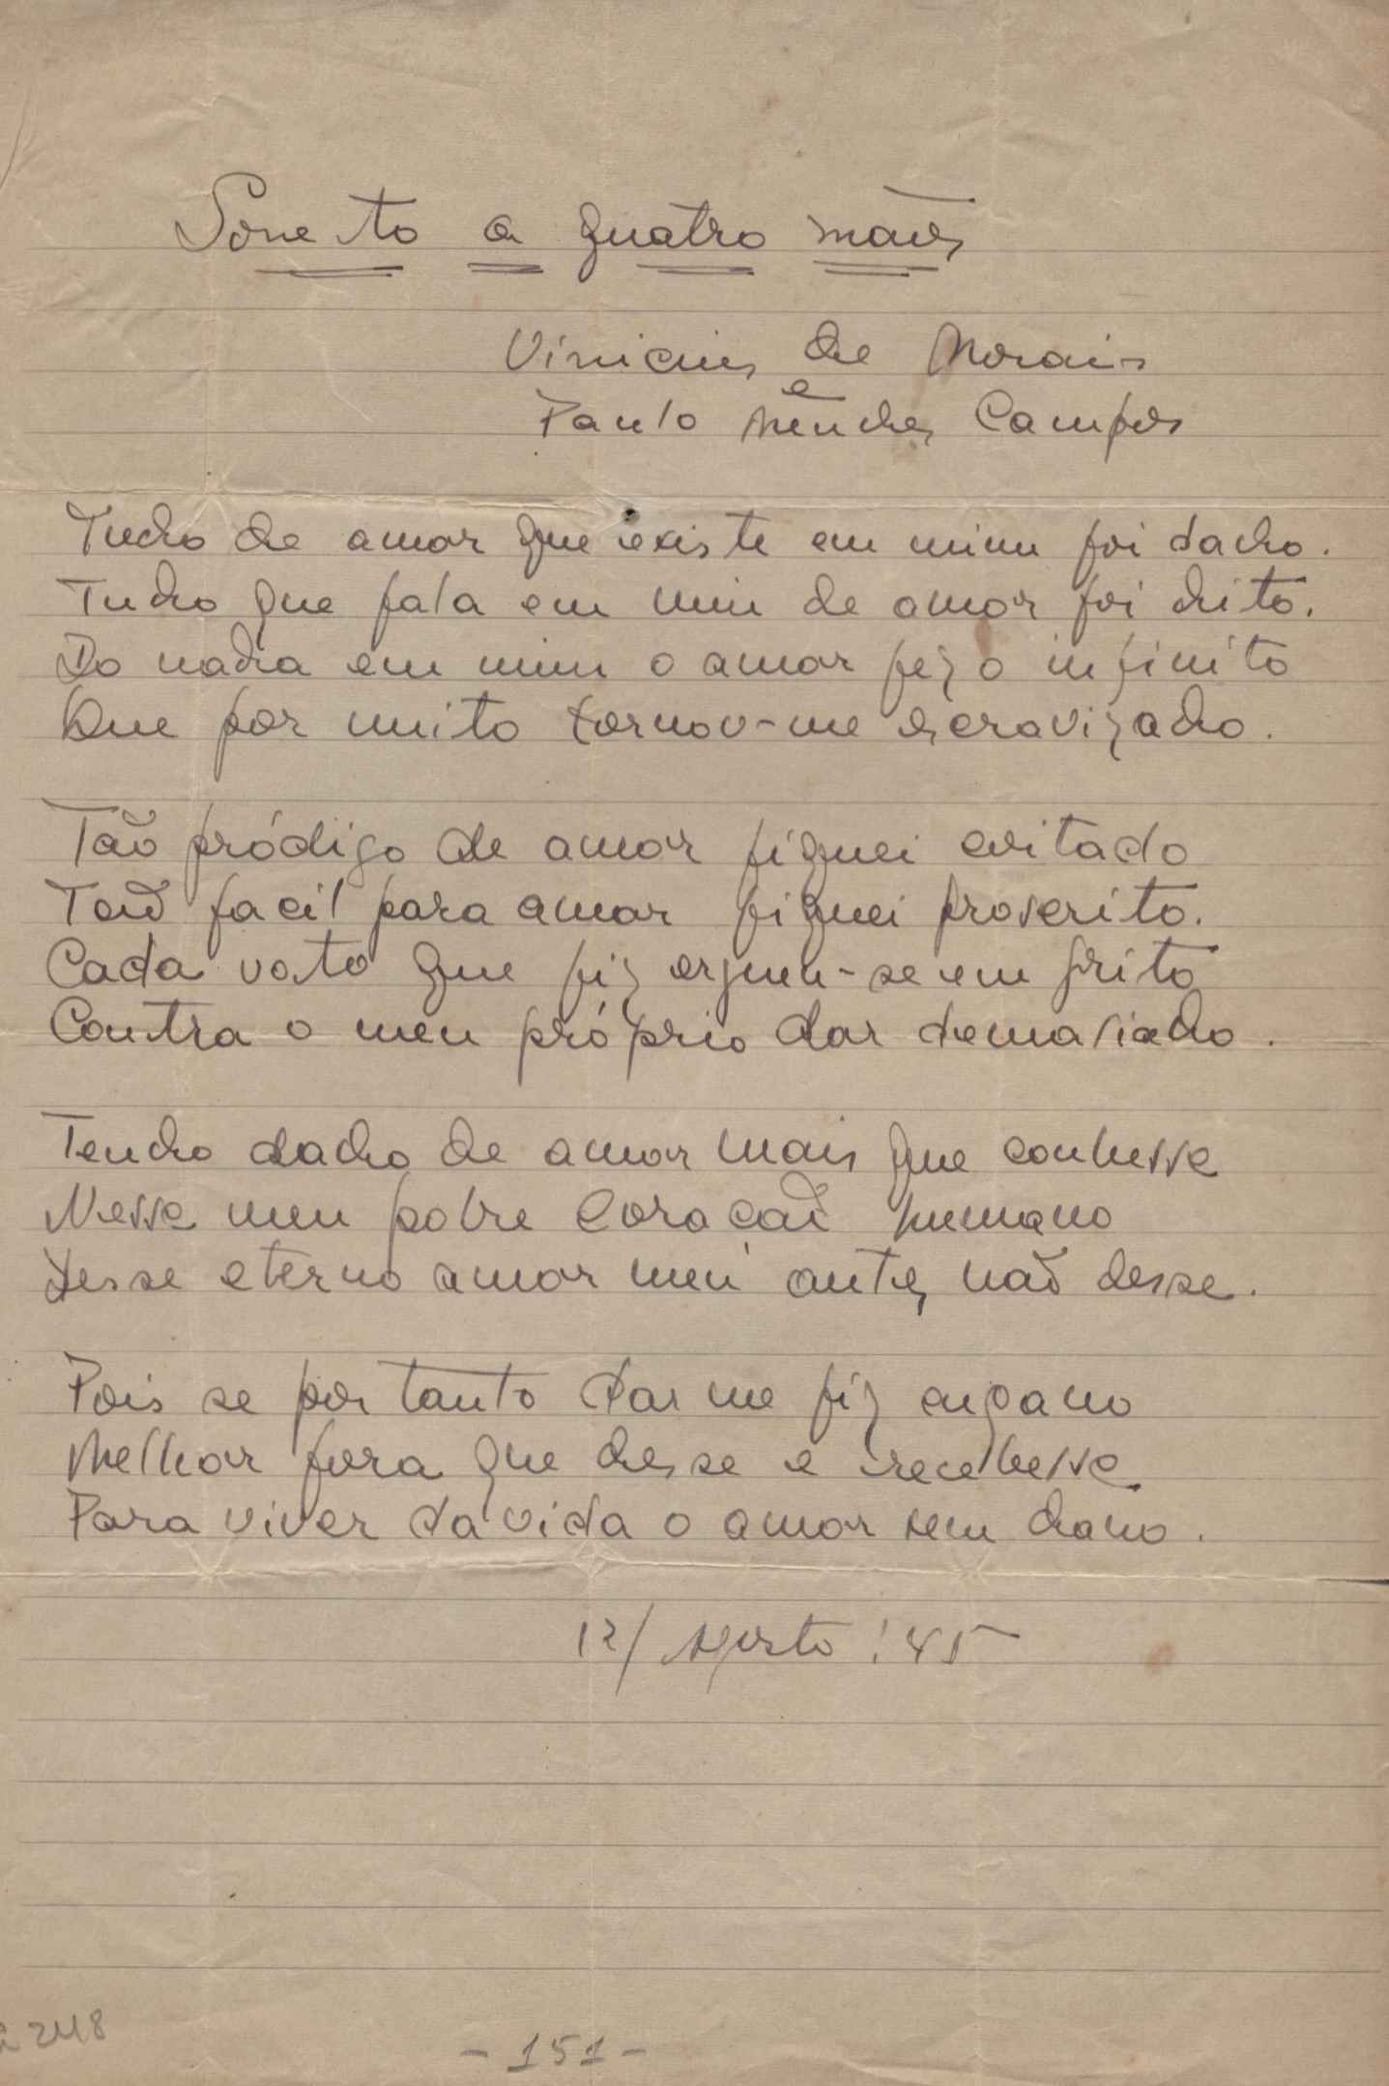 Soneto a quatro mãos
Vinicius de Morais
e
Paulo Mendes Campos
Tudo de amor que existe em mim foi dado.
Tudo que fala em mim de amor foi dito.
Do nada em mim o amor fez o infinito
Que por muito tornou-me escravizado.
Tão pródigo de amor fiquei coitado
Tão facil para amar fiquei proscrito.
Cada voto que fiz ergueu-se em grito
Contra o meu próprio dar demasiado.
Tendo dado de amor mais que coubesse
Nesse meu pobre coração humano
Desse eterno amor meu antes não desse.
Pois se por tanto dar me fiz engano
Melhor fora que desse e recebesse
Para viver da vida o amor sem dano.
12/ Agosto /45
248
- 151 -